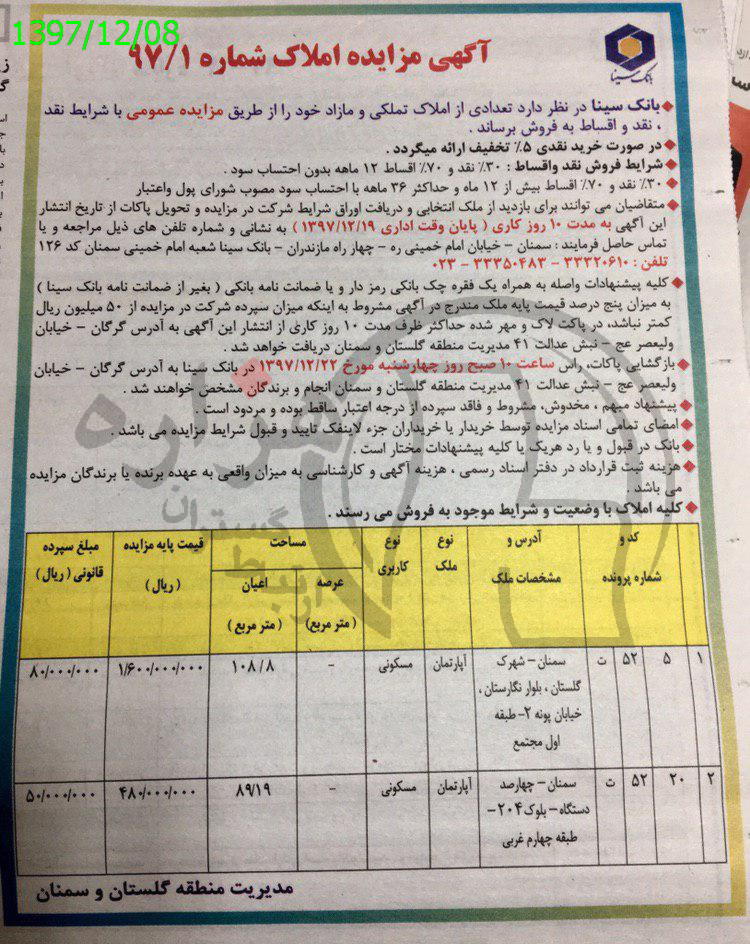 1397/12/08
بانک سینا
آگهی مزایده املاک شماره ۹۷/۱
◆ بانک سینا در نظر دارد تعدادی از املاک تملکی و مازاد خود را از طریق مزایده عمومی با شرایط نقد
، نقد و اقساط به فروش برساند .
◆ در صورت خرید نقدی ۵٪ تخفیف ارائه میگردد .
◆ شرایط فروش نقد واقساط : ۳۰٪ نقد و ۷۰٪ اقساط ۱۲ ماهه بدون احتساب سود .
◆ ۳۰٪ نقد و ۷۰٪ اقساط بیش از ۱۲ ماه و حداکثر ۳۶ ماهه با احتساب سود مصوب شورای پول واعتبار
◆ متقاضیان می توانند برای بازدید از ملک انتخابی و دریافت اوراق شرایط شرکت در مزایده و تحویل پاکات از تاریخ انتشار
این آگهی به مدت ۱۰ روز کاری ( پایان وقت اداری ۱۳۹۷/۱۲/۱۹ ) به نشانی و شماره تلفن های ذیل مراجعه و یا
تماس حاصل فرمایند : سمنان – خیابان امام خمینی ره – چهار راه مازندران – بانک سینا شعبه امام خمینی سمنان کد ۱۲۶
تلفن : ۳۳۳۲۰۶۱۰ – ۳۳۳۵۰۴۸۳ – ۰۲۳
◆ کلیه پیشنهادات واصله به همراه یک فقره چک بانکی رمز دار و یا ضمانت نامه بانکی ( بغیر از ضمانت نامه بانک سینا )
به میزان پنج درصد قیمت پایه ملک مندرج در آگهی مشروط به اینکه میزان سپرده شرکت در مزایده از ۵۰ میلیون ریال
کمتر نباشد، در پاکت لاک و مهر شده حداکثر ظرف مدت ۱۰ روز کاری از انتشار این آگهی به آدرس گرگان – خیابان
ولیعصر عج – نبش عدالت ۴۱ مدیریت منطقه گلستان و سمنان دریافت خواهد شد .
◆ بازگشایی پاکات، راس ساعت ۱۰ صبح روز چهارشنبه مورخ ۱۳۹۷/۱۲/۲۲ در بانک سینا به آدرس گرگان – خیابان
ولیعصر عج – نبش عدالت ۴۱ مدیریت منطقه گلستان و سمنان انجام و برندگان مشخص خواهند شد .
◆ پیشنهاد مبهم ، مخدوش، مشروط و فاقد سپرده از درجه اعتبار ساقط بوده و مردود است .
◆ امضای تمامی اسناد مزایده توسط خریدار یا خریداران جزء لاینفک تایید و قبول شرایط مزایده می باشد .
◆ بانک در قبول و یا رد هریک یا کلیه پیشنهادات مختار است .
◆ هزینه ثبت قرارداد در دفتر اسناد رسمی ، هزینه آگهی و کارشناسی به میزان واقعی به عهده برنده یا برندگان مزایده
می باشد .
◆ کلیه املاک با وضعیت و شرایط موجود به فروش می رسند .
کد و شماره پرونده | آدرس و مشخصات ملک | نوع ملک | نوع کاربری | مساحت | قیمت پایه مزایده ( ریال ) | مبلغ سپرده قانونی ( ریال )
عرصه ( متر مربع ) | اعیان ( متر مربع )
۱ | ۵ | ۵۲ | ت | سمنان – شهرک گلستان ، بلوار نگارستان ، خیابان پونه ۲- طبقه اول مجتمع | آپارتمان | مسکونی | - | ۱۰۸/۸ | ۱/۶۰۰/۰۰۰/۰۰۰ | ۸۰/۰۰۰/۰۰۰
۲ | ۲۰ | ۵۲ | ت | سمنان – چهارصد دستگاه – بلوک ۲۰۴ – طبقه چهارم غربی | آپارتمان | مسکونی | - | ۸۹/۱۹ | ۴۸۰/۰۰۰/۰۰۰ | ۵۰/۰۰۰/۰۰۰
مدیریت منطقه گلستان و سمنان
هزاره
گستران
ارتباط